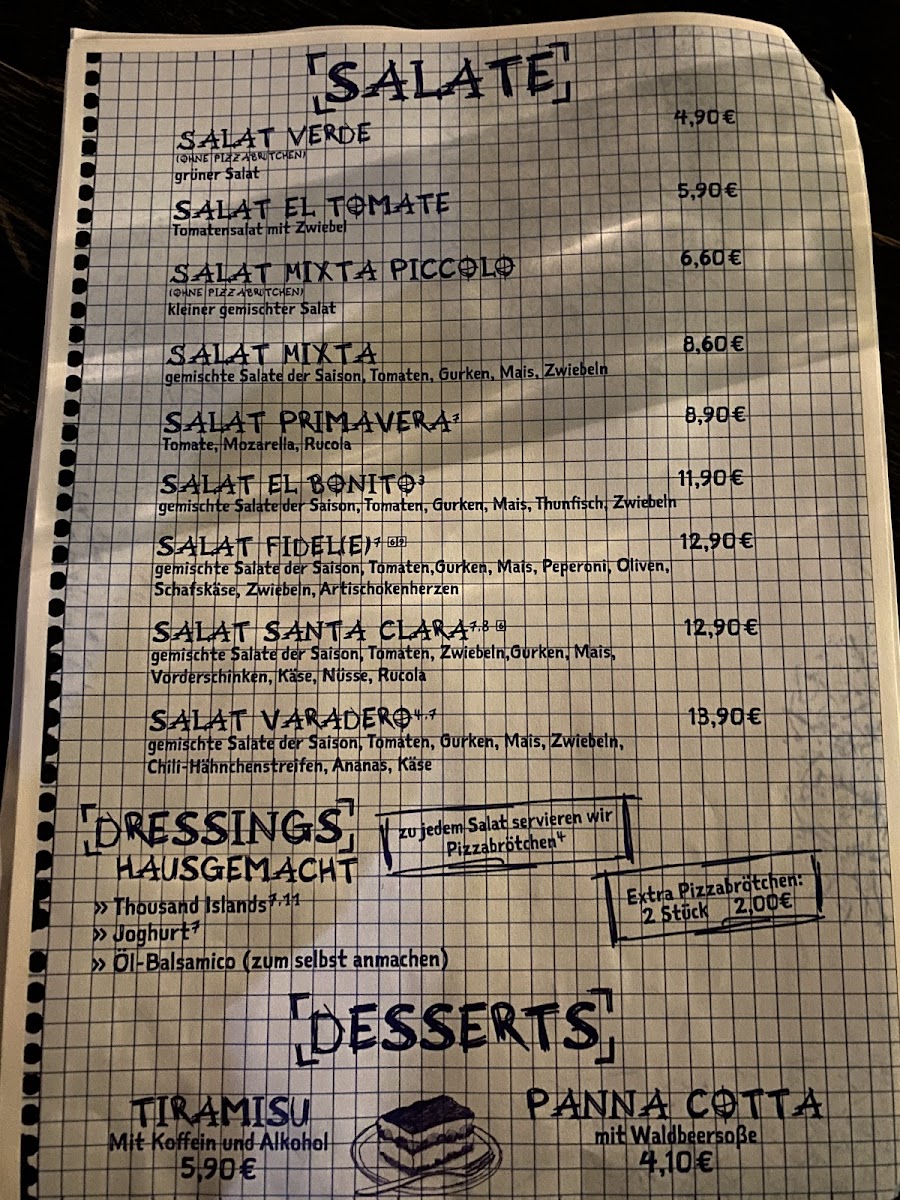 SALATE
SALAT VERDE 4,90€
(OHNE PIZZABRÖTCHEN)
grüner Salat
SALAT EL TOMATE 5,90€
Tomatensalat mit Zwiebel
SALAT MIXTA PICCOLO 6,60€
(OHNE PIZZABRÖTCHEN)
kleiner gemischter Salat
SALAT MIXTA 8,60€
gemischte Salate der Saison, Tomaten, Gurken, Mais, Zwiebeln
SALAT PRIMAVERA⁷ 8,90€
Tomate, Mozarella, Rucola
SALAT EL BONITO³ 11,90€
gemischte Salate der Saison, Tomaten, Gurken, Mais, Thunfisch, Zwiebeln
SALAT FIDEL(E)⁷ 12,90€
gemischte Salate der Saison, Tomaten,Gurken, Mais, Peperoni, Oliven,
Schafskäse, Zwiebeln, Artischokenherzen
SALAT SANTA CLARA⁷·⁸ 12,90€
gemischte Salate der Saison, Tomaten, Zwiebeln,Gurken, Mais,
Vorderschinken, Käse, Nüsse, Rucola
SALAT VARADERO⁴·⁷ 13,90€
gemischte Salate der Saison, Tomaten, Gurken, Mais, Zwiebeln,
Chili-Hähnchenstreifen, Ananas, Käse
DRESSINGS
HAUSGEMACHT
» Thousand Islands⁷·¹¹
» Joghurt⁷
» Öl-Balsamico (zum selbst anmachen)
zu jedem Salat servieren wir
Pizzabrötchen⁴
Extra Pizzabrötchen:
2 Stück 2,00€
DESSERTS
TIRAMISU
Mit Koffein und Alkohol
5,90€
PANNA COTTA
mit Waldbeersoße
4,10€